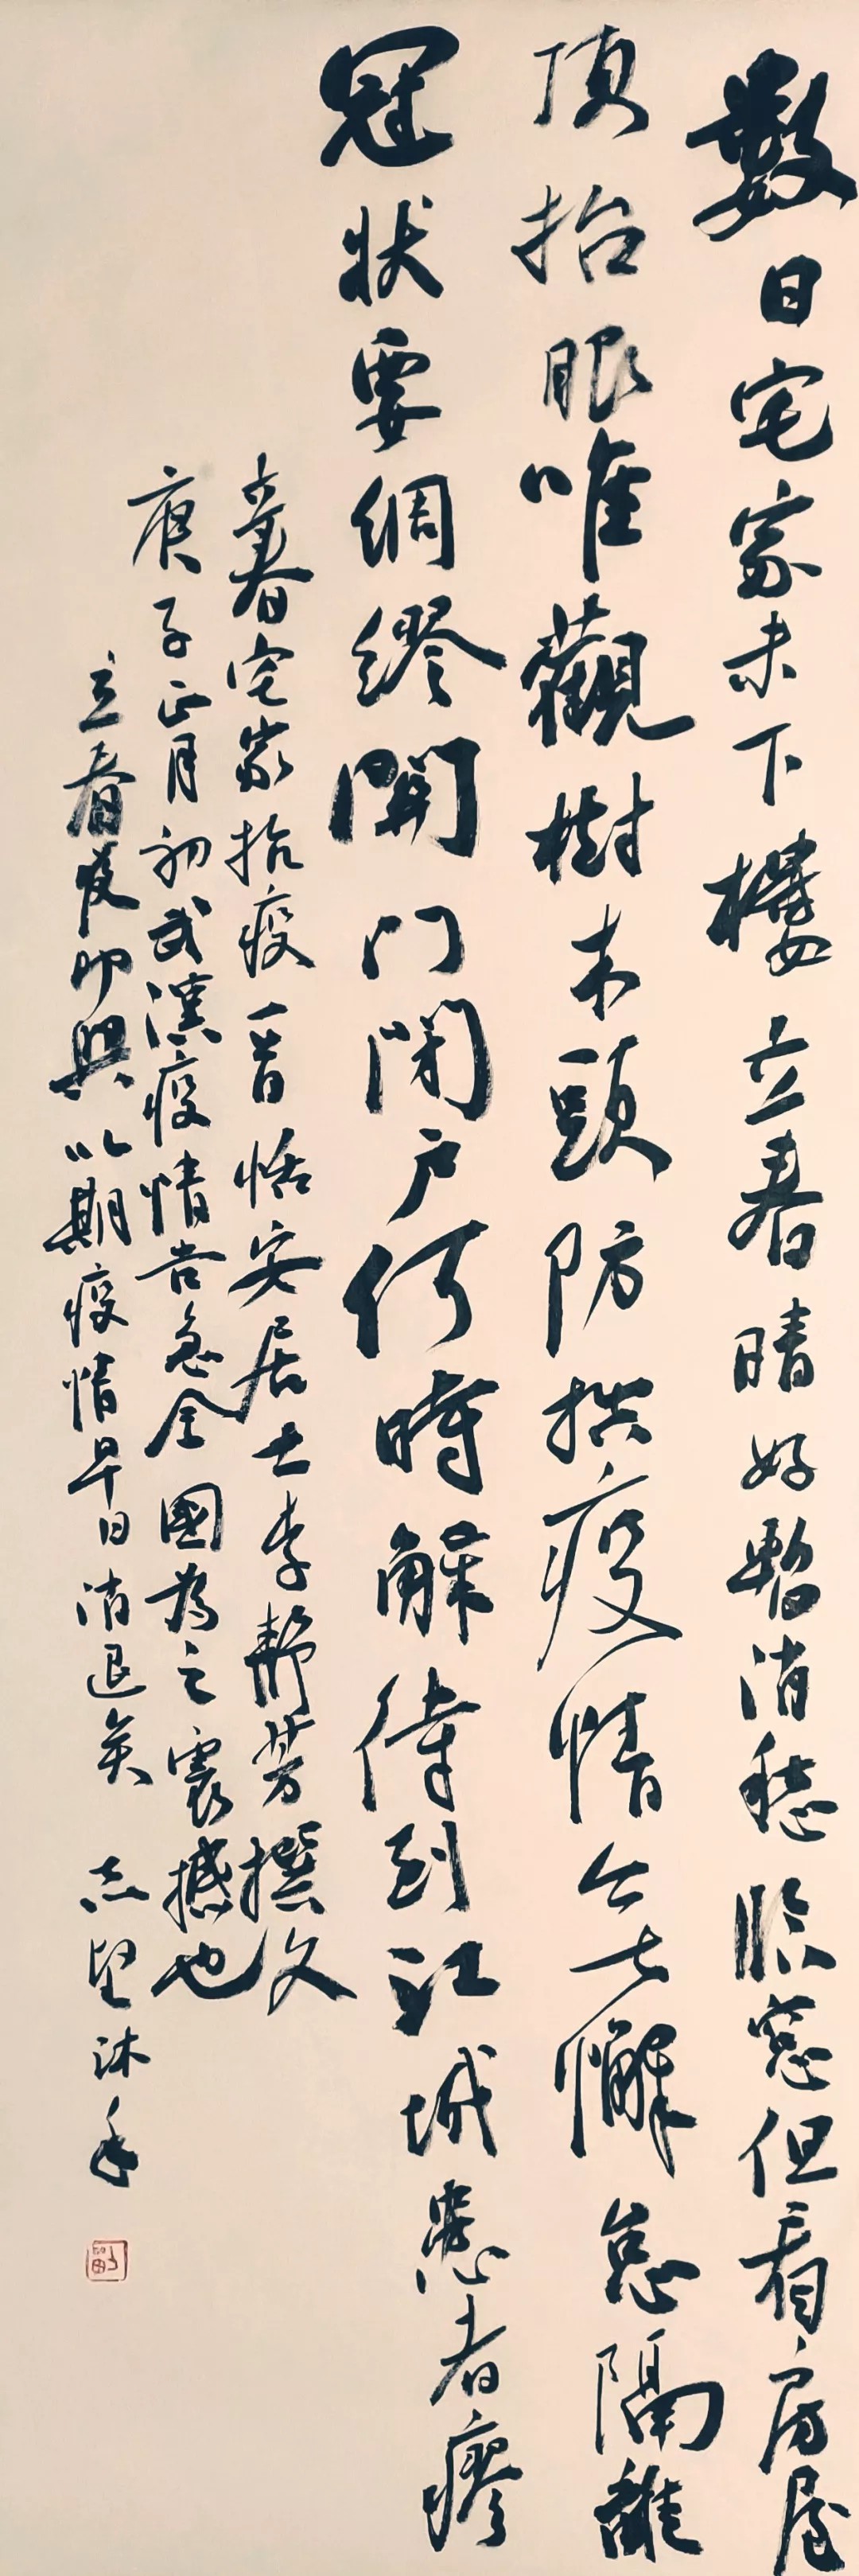 數日宅家未下樓立春晴好暫消愁臨窗但看房屋
頂抬眼唯觀樹木頭防控疫情無懈怠隔離
冠狀要綢繆開门閉户何時解待到江城患者瘳
立春宅家抗疫一首恬安居士李静芳撰文
庚子正月初武漢疫情告急全國為之震撼也
立春夜即興以期疫情早日消退矣 志堅沐手